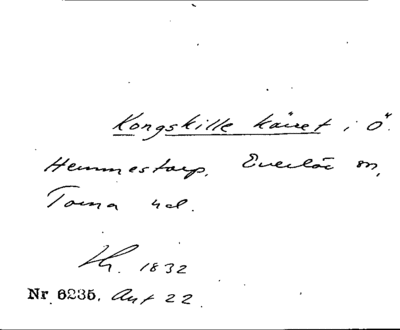 Kongskille käret i Ö.
Hemmestorp. Everlöv sn,
Torna hd.
1832
Nr 6235. Ant 22.